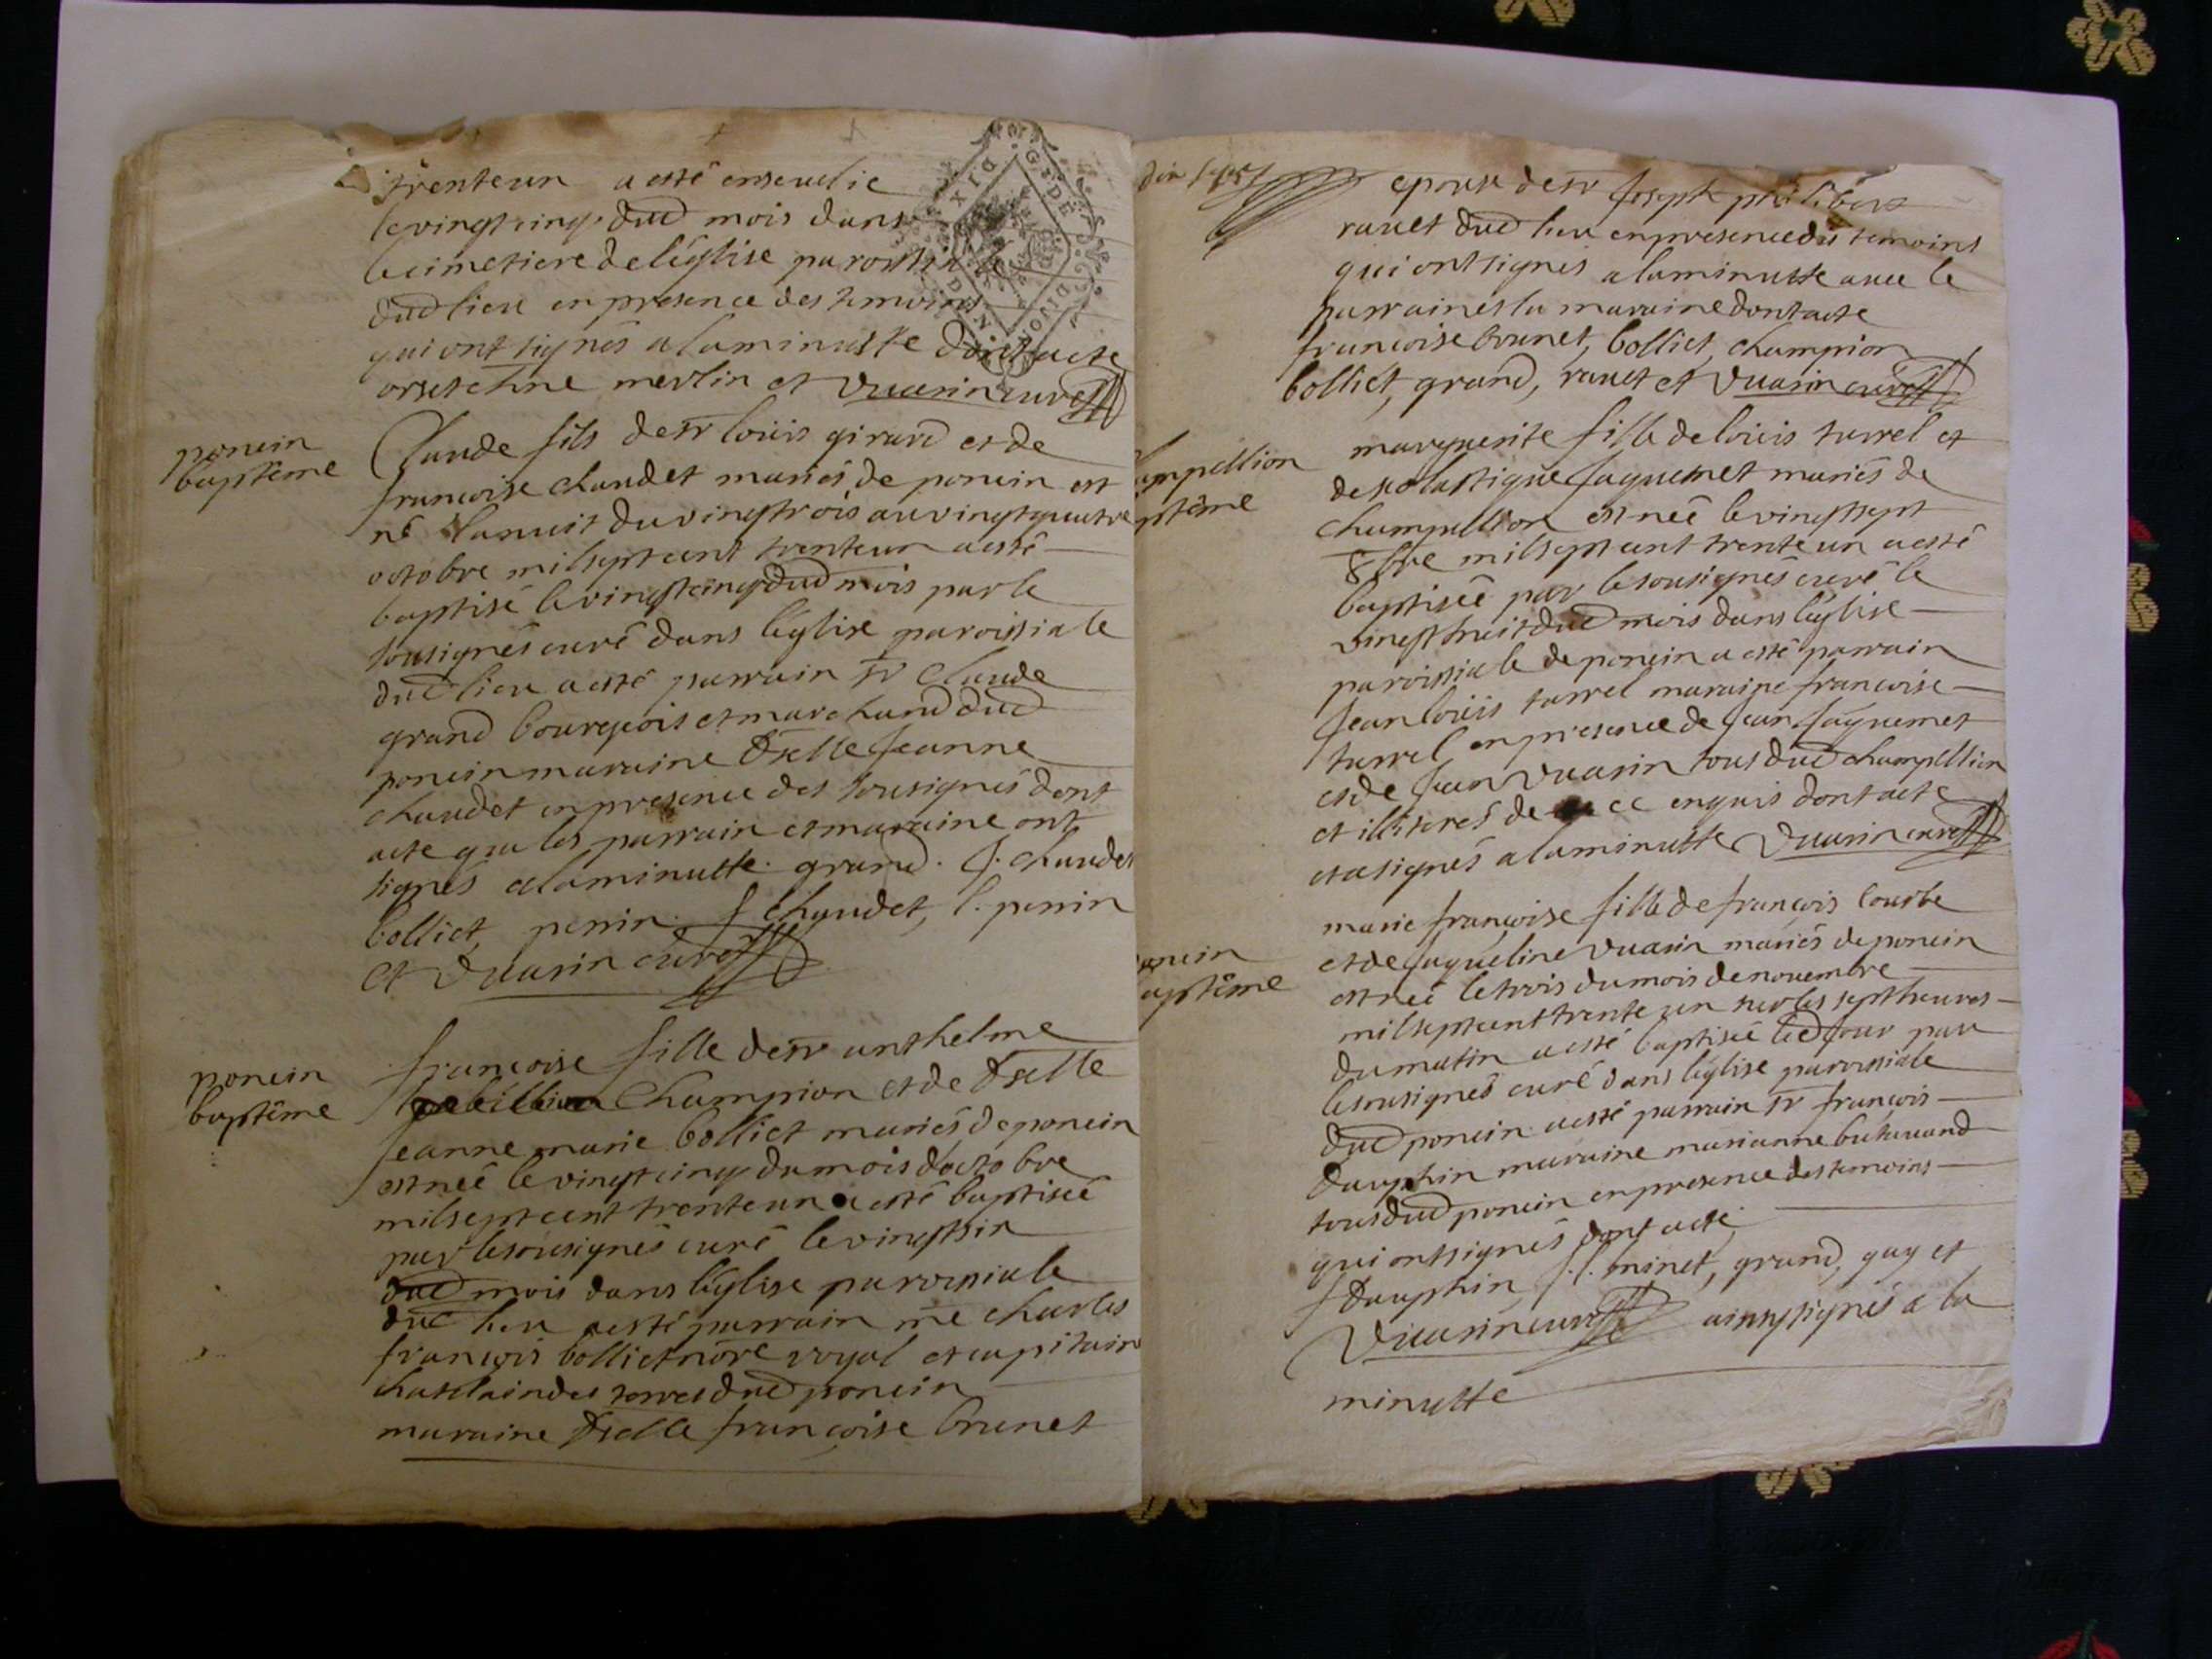 trenteun a esté ensevelie
le vingt cinq dud mois dans
le cimetiere de l'église paroissiale
dud lieu en presence des temoins
qui ont signés a la minutte dont acte
orset chne merlin et vuarin curé
poncin
baptême
Claude fils de sr loüis girard et de
francoise chaudet mariés de poncin est
né la nuit du vingtrois au vingtquatre
octobre milseptcent trenteun a esté
baptisé le vingtcinq dud mois par le
sousignés curé dans l'église paroissiale
dud lieu a esté parrain sr Claude
grand bourgeois et marchand dud
poncin maraine dselle Jeanne
chaudet en presence des sousignés dont
acte que les parrain et maraine ont
signés a la minutte. grand. J. chaudet
bolliet, perrin. f chaudet, l. perrin
et vuarin curé
poncin
baptême
francoise fille de sr anthelme
Champion et de dselle
Jeanne marie bolliet mariés de poncin
est neé le vingt cinq du mois d'octobre
milseptcent trenteun a esté baptiseé
par le sousignés curé le vingtsix
dud mois dans l'église paroissiale
dud lieu a esté parrain me charles
françois bolliet nore royal et capitaine
chatelain des terres dud poncin
maraine dselle françoise brunet
dix sept
epouse de sr Joseph philibert
ravet dud lieu en presence des temoins
qui ont signés a la minutte avec le
parrain et la maraine dont acte
francoise brunet, bolliet, champion
bolliet, grand, ravet et vuarin curé
ampellion
ptême
marguerite fille de loüis turrel et
de scolastique Jaquemet mariés de
champellion est neé le vingtsept
8bre milseptcent trente un a esté
baptiseé par le sousignés curé le
vingthuit dud mois dans l'église
paroissiale de poncin a esté parrain
Jean loüis turrel maraine francoise
turrel en presence de Jean Jaquemet
et de Jean vuarin tous dud champellion
et illiterés de ce enquis dont acte
et a signés a la minutte vuarin curé
oncin
aptême
marie françoise fille de françois courbe
et de Jaqueline vuarin mariés de poncin
est neé le trois du mois de novembre
milseptcent trente un sur les sept heures
du matin a esté baptiseé led jour par
le sousignés curé dans l'église paroissiale
dud poncin a esté parrain sr françois
dauphin maraine marianne butavand
tous dud poncin en presence des temoins
qui ont signés dont acte
f dauphin, f. l. minet, grand, guy et
vuarin curé ainsy signés a la
minutte